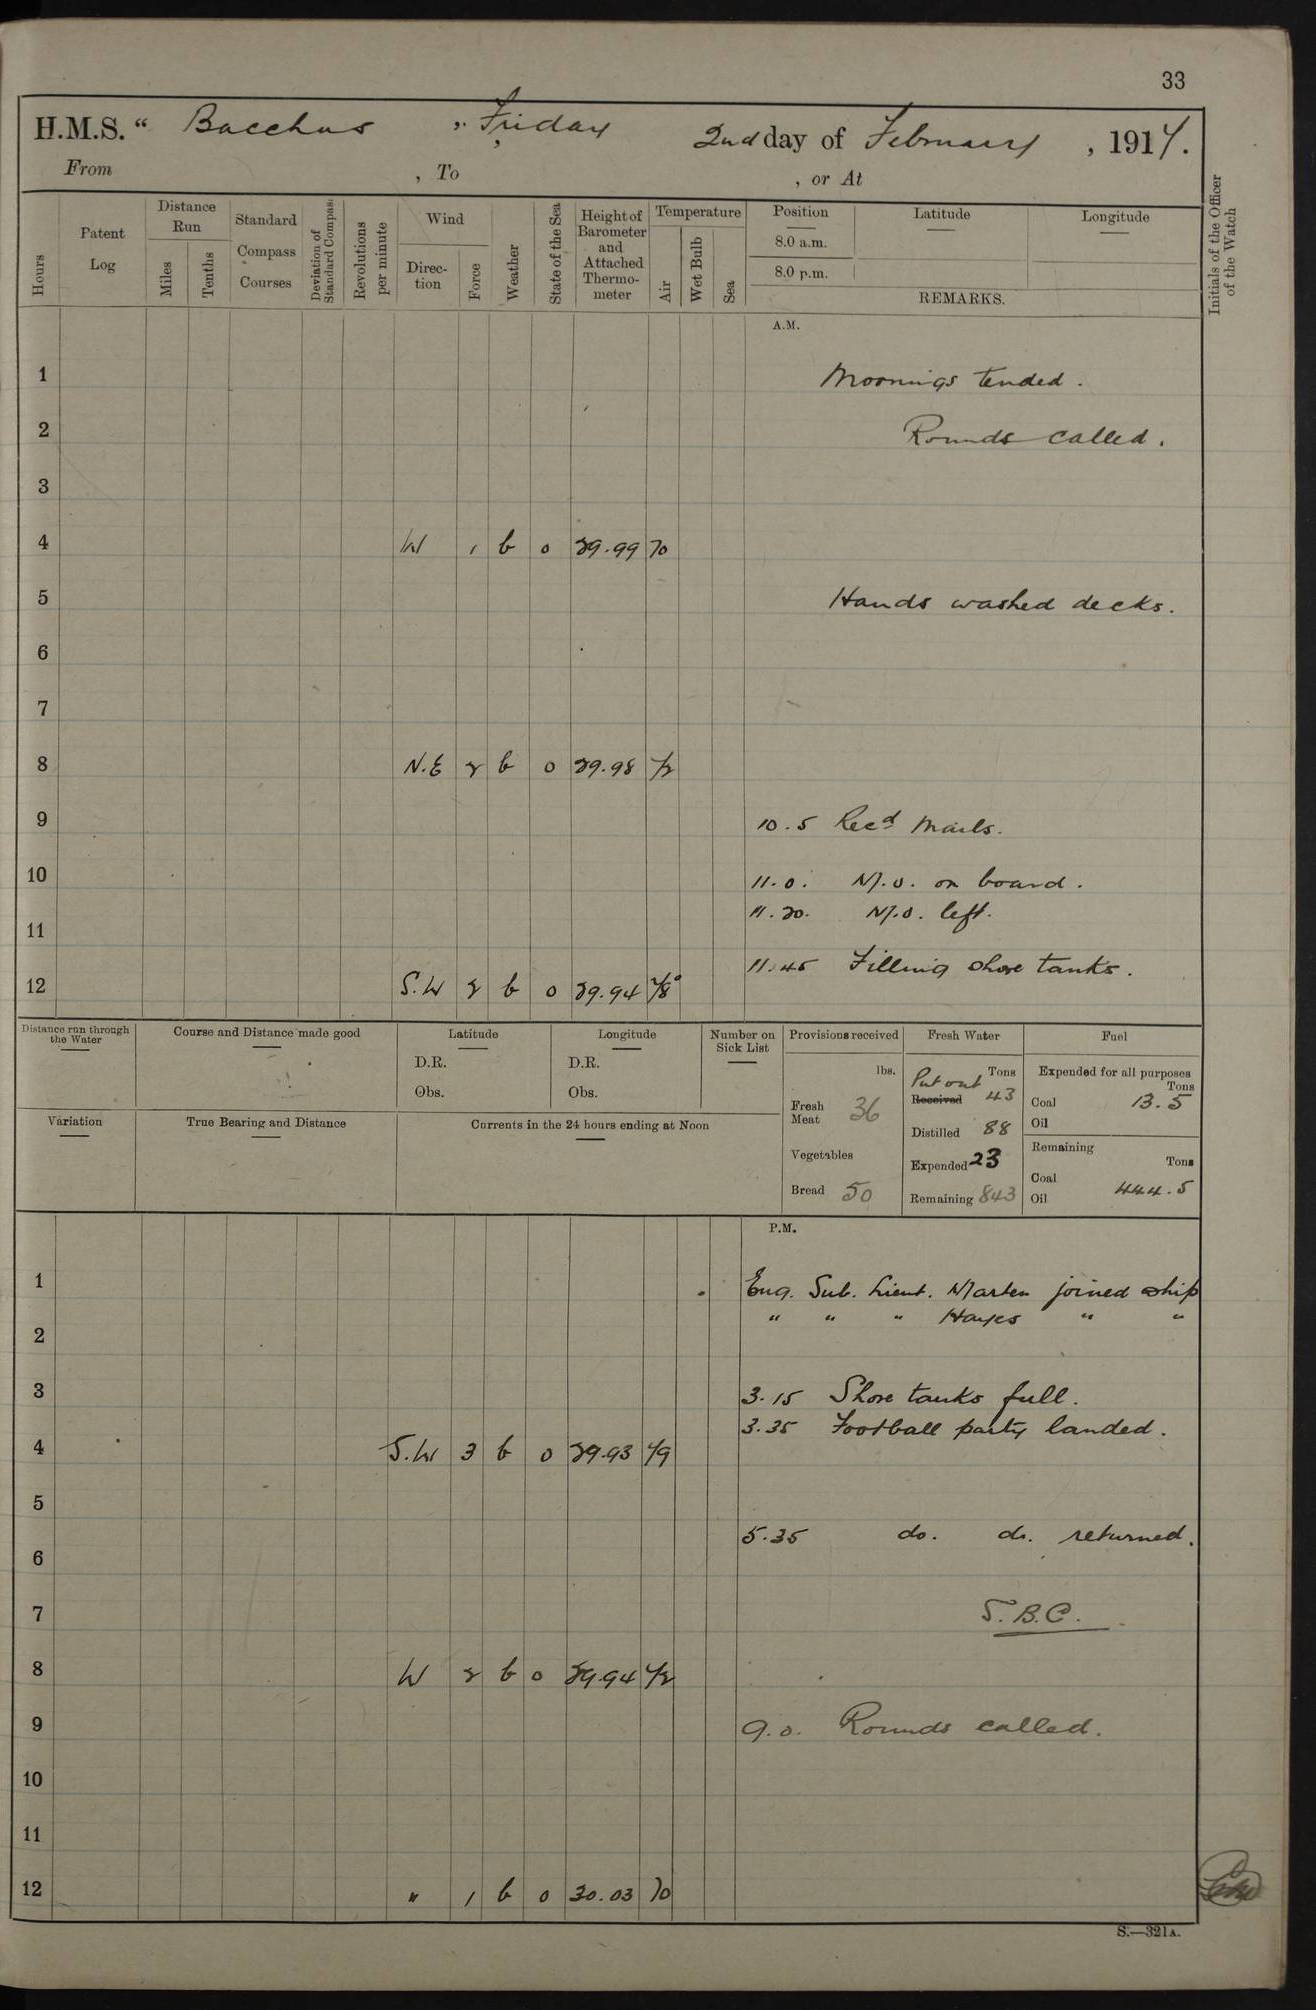 33
H.M.S. “ Bacchus ” Friday 2nd day of February , 1917.
From , To , or At
Hours
Patent Log
Distance Run
Miles
Tenths
Standard Compass Courses
Deviation of Standard Compass
Revolutions per minute
Wind
Direc-tion
Force
Weather
State of the Sea
Height of Barometer and Attached Thermo-meter
Temperature
Air
Wet Bulb
Sea
Position
8.0 a.m.
8.0 p.m.
Latitude
Longitude
REMARKS.
Initials of the Officer of the Watch
A.M.
1 Moorings tended.
2 Rounds called.
3
4 W 1 b 0 29.99 70
5 Hands washed decks.
6
7
8 N.E 2 b 0 29.98 72
9 10.5 Recd Mails.
10 11.0. M.O. on board.
11.20. M.O. left.
11
11.45 Filling shore tanks.
12 S.W 2 b 0 29.94 78°
Distance run through the Water
Course and Distance made good
Latitude
D.R.
Obs.
Longitude
D.R.
Obs.
Number on Sick List
Provisions received
lbs.
Fresh Meat 36
Vegetables
Bread 50
Fresh Water
Tons
Put out
Received 43
Distilled 88
Expended 23
Remaining 843
Fuel
Expended for all purposes
Tons
Coal 13.5
Oil
Remaining
Tons
Coal
Oil 444.5
Variation
True Bearing and Distance
Currents in the 24 hours ending at Noon
P.M.
1 Eng. Sub. Lieut. Marten joined ship
" " " Hayes " "
2
3 3.15 Shore tanks full.
3.35 Football party landed.
4 S.W 3 b 0 29.93 79
5
5.35 do. do. returned.
6
7 S.B.C.
8 W 2 b 0 29.94 72
9 9.0. Rounds called.
10
11
12 " 1 b 0 30.03 70
S.—321A.